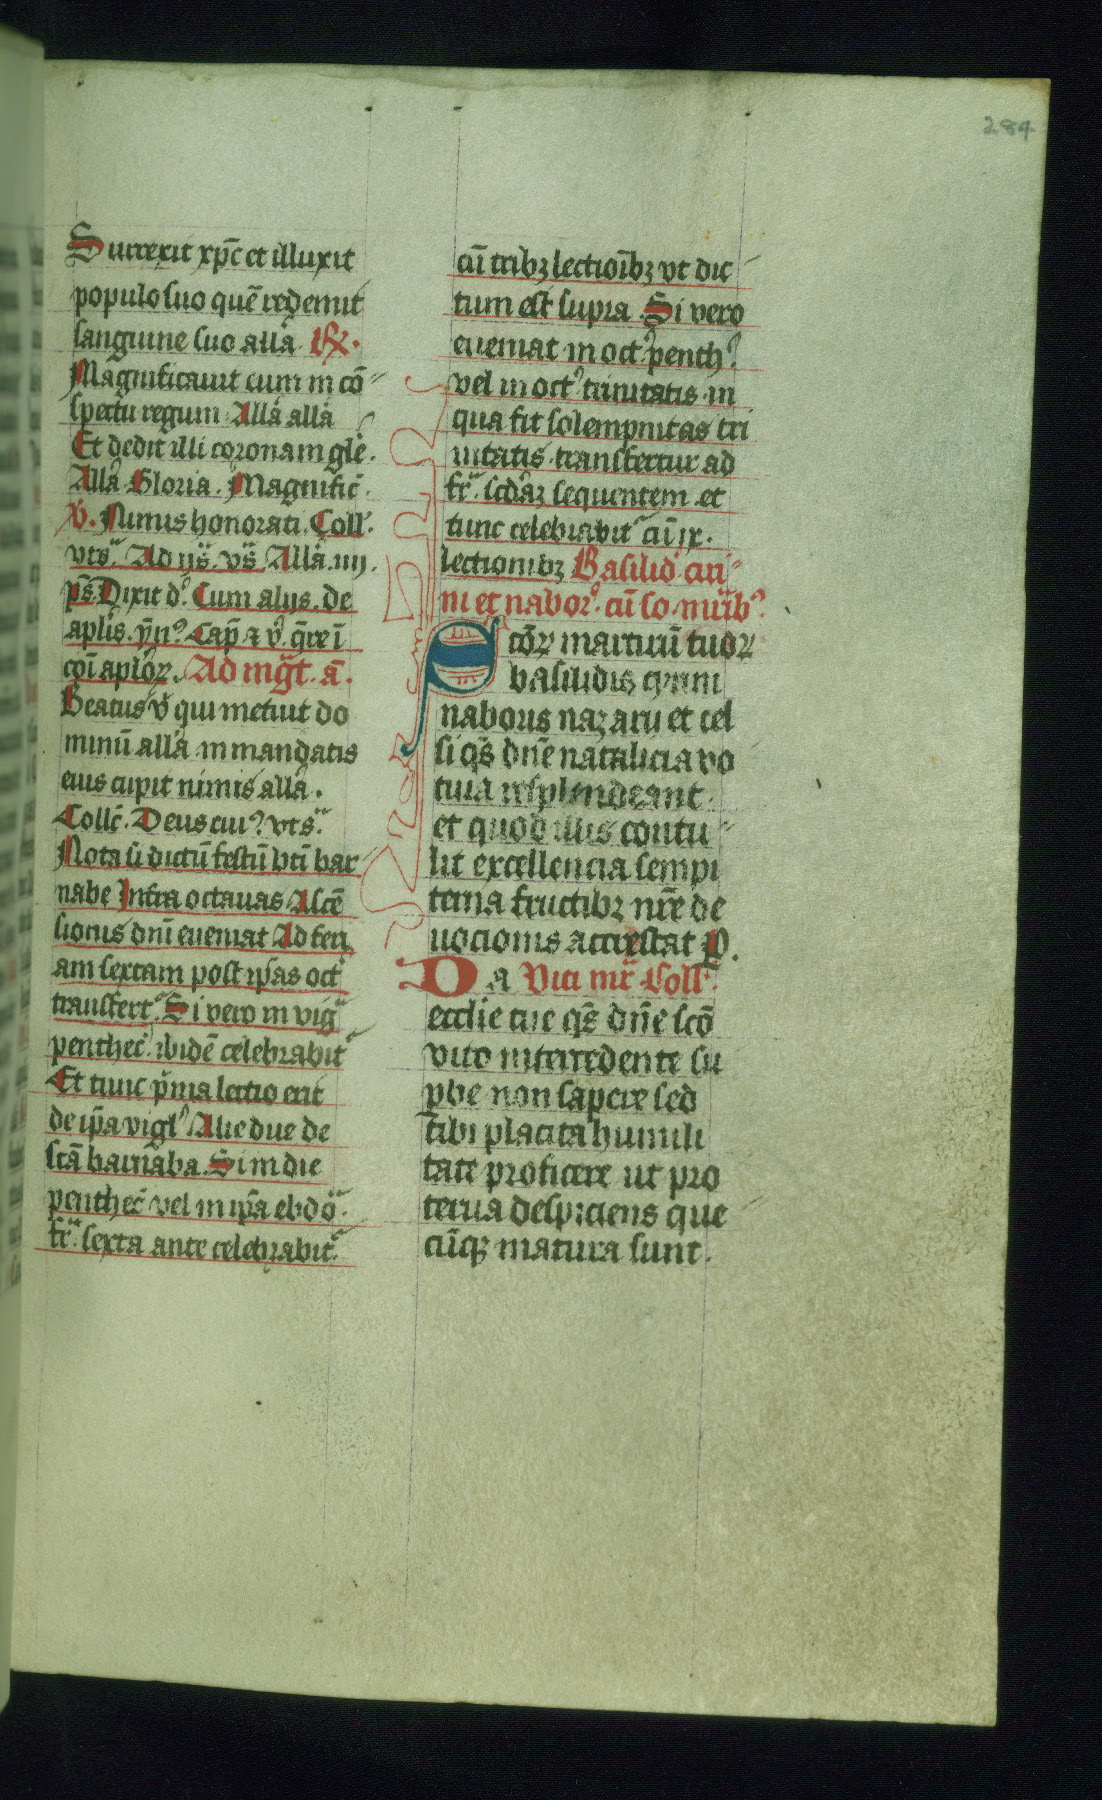 284
Surrexit xp̄c et illuxit
populo suo quē redemit
sanguine suo alla. Rx.
Magnificauit eum in cō
spectu regum. Alla alla
Et dedit illi coronam gle.
Alla. Gloria. Magnific̄.
v̄. Nimis honorati. Coll.
vts. Ad ijs. vs̄. Alla. iiij.
ps̄. Dixit d. Cum alijs. de
aplis. ȳn. Cap̄ et v̄. q̄re ī
cōi aplor. Ad mḡt. ā.
Beatus v̄ qui metuit do
minū alla in mandatis
eius cupit nimis alla.
Collc̄. Deus cui. vts.
Nota si dictū festū bti bar
nabe Infra octauas Ascē
sionis dnī eueniat Ad feri
am sextam post ipsas oct
transfert. Si vero in vig
penthec̄. ibidē celebrabit
Et tunc p̄ma lectio erit
de ip̄a vigl. Alie due de
scā barnaba. Si in die
penthec̄ vel in ip̄a ebdō.
fr. sexta ante celebrabit.
cū tribz lectioībz vt dic
tum est supra. Si vero
eueniat in oct. penth.
vel in oct. trinitatis in
qua fit solempnitas tri
nitatis. transfertur ad
fr. scdaz sequentem. et
tunc celebrabit cū ix.
lectionibz Basilid. ciri
ni et nabor. cū so. mrib.
Scōr martirū tuor
basilidis cyrini
naboris nazarij et cel
si qs̄ dnē natalicia vo
tiua resplendeant.
et quod illis contu
lit excellencia sempi
terna fructibz nrē de
uocionis accrescat P.
Da Viti mr̄ Coll.
ecclie tue qs̄ dn̄e scō
vito intercedente su
pbe non sapere sed
tibi placita humili
tate proficere ut pro
terua despiciens que
cūqz matura sunt.